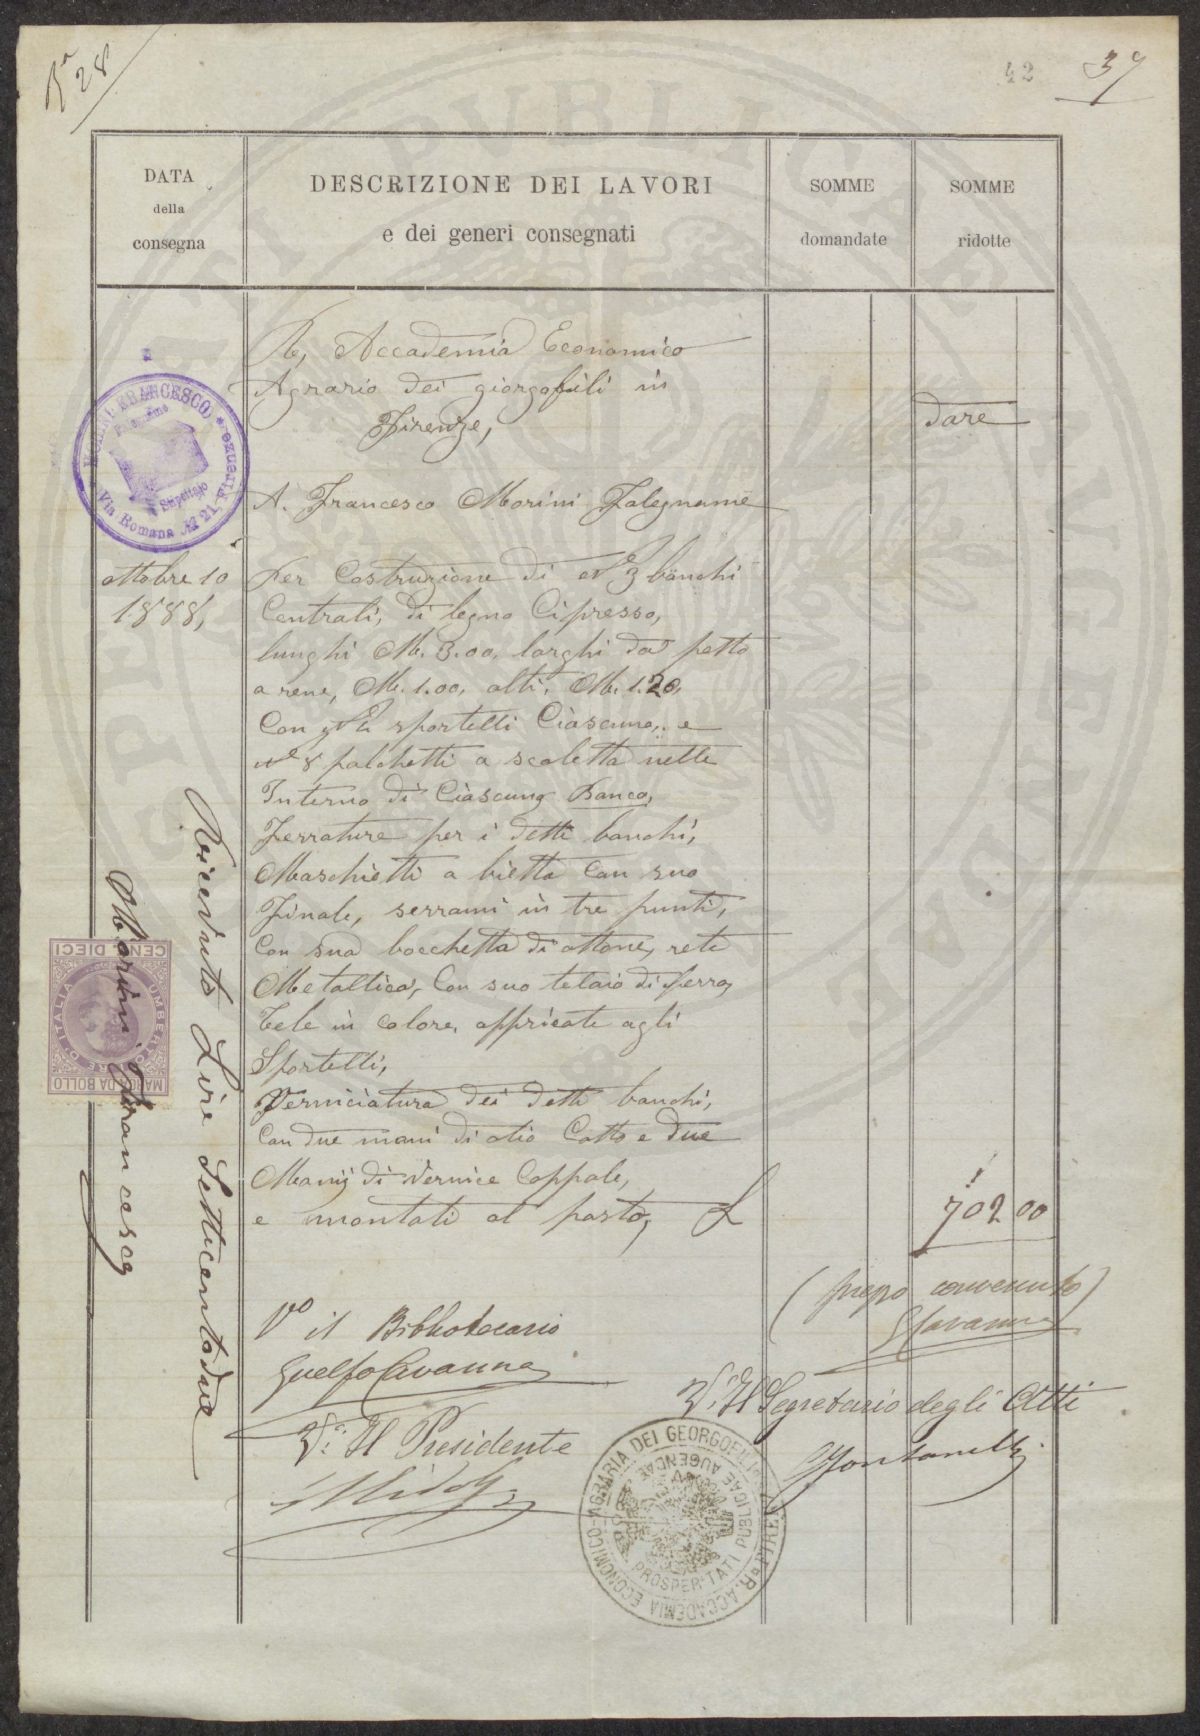 28
42
37
DATA
della
consegna
DESCRIZIONE DEI LAVORI
e dei generi consegnati
SOMME
domandate
SOMME
ridotte
R, Accademia Economico
Agrario dei giorgofili in
Firenze,
Dare
A. Francesco Morini Falegname
MORINI FRANCESCO
Falegname
Stipettaio
Via Romana No 21, Firenze
ottobre 10
1888,
per Costruzione di No 3 banchi
Centrali, di legno Cipresso,
lunghi M. 3.00, larghi da petto
a rene, M. 1.00, alti, M. 1.20,
Con sportelli Ciascuno, e
No 8 palchetti a scaletta nelle
Interno di Ciascuno Banco,
Ferrature per i detti banchi,
Maschietti a bietta Con suo
Finale, serrami in tre punti,
Con sua bocchetta di ottone, rete
Metallica, Con suo telaio di ferro,
Tele in Colore, appricate agli
Sportelli,
Verniciatura dei detti banchi,
Con due mani di olio Cotto e due
Mani di Vernice Coppale,
e montati al posto, L
702 00
(prezzo convenuto)
GCavanna
Vo il Bibliotecario
Guelfo Cavanna
V. Il Segretario degli Atti
V. Il Presidente
Ricevuto Lire Setticentodue
Morini Francesco
MARCA DA BOLLO
UMBERTO I RE D'ITALIA
CENT. DIECI
R. ACCADEMIA ECONOMICO-AGRARIA DEI GEORGOFILI DI FIRENZE
PROSPERITATI PUBLICAE AUGENDAE